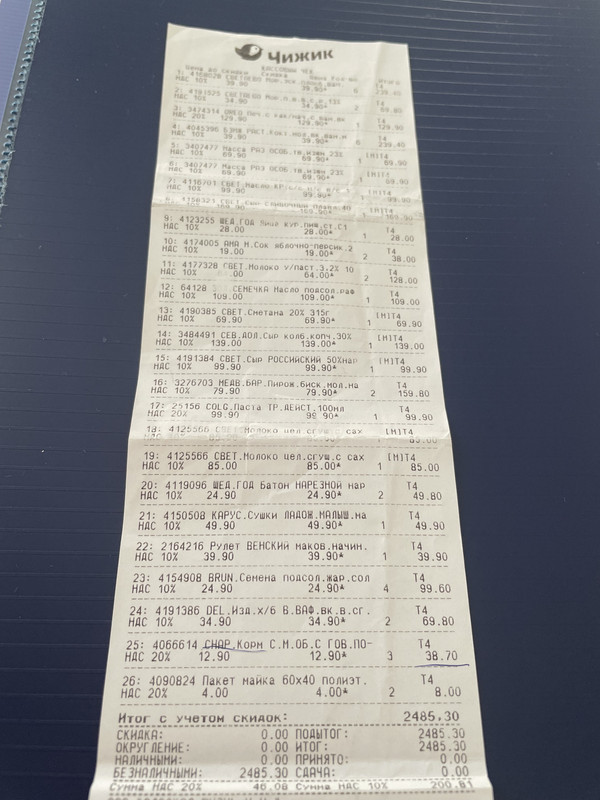 Чижик
Цена до скидки КАССОВЫЙ ЧЕК
Скидка Итого
НДС 10% 39.90 39.90* 6
2: 4191525 СВЕТАЕВО T4
НДС 10% 34.90 34.90* 2 69.80
3: 3474314 T4
НДС 20% 129.90 129.90* 1 129.90
4: 4045396 T4
НДС 10% 39.90 39.90* 6 239.40
5: 3407477 Масса РАЗ ОСОБ.тв.изюм 23% [M]T4
НДС 10% 69.90 69.90* 1 69.90
6: 3407477 Масса РАЗ ОСОБ.тв.изюм 23% [M]T4
НДС 10% 69.90 69.90* 1 69.90
7: 4116701 СВЕТ.Масло [M]T4
9: 4123255 ШЕД.ГОД Яйцо T4
НДС 10% 28.00 28.00* 1 28.00
10: 4174005 АНА М.Сок яблочно-персик.2 T4
НДС 10% 19.00 19.00* 2 38.00
11: 4177328 СВЕТ.Молоко у/паст.3.2% 10 T4
НДС 10% .00 64.00* 2 128.00
12: 64128 СЕМЕЧКА Масло подсол.раф T4
НДС 10% 109.00 109.00* 1 109.00
13: 4190385 СВЕТ.Сметана 20% 315г [M]T4
НДС 10% 69.90 69.90* 1 69.90
14: 3484491 СЕВ.ДОЛ.Сыр колб.копч.30% [M]T4
НДС 10% 139.00 139.00* 1 139.00
15: 4191384 СВЕТ.Сыр РОССИЙСКИЙ 50%нар [M]T4
НДС 10% 99.90 99.90* 1 99.90
16: 3276703 МЕДВ.БАР.Пирож.биск.мол.на T4
НДС 10% 79.90 79.90* 2 159.80
17: 25156 COLG.Паста ТР.ДЕЙСТ.100мл T4
НДС 20% 99.90 99.90* 1 99.90
18: 4125566 Молоко цел.сгущ. сах [M]T4
85.00
19: 4125566 СВЕТ.Молоко цел.сгущ.с сах [M]T4
НДС 10% 85.00 85.00* 1 85.00
20: 4119096 ШЕД.ГОД Батон НАРЕЗНОЙ нар T4
НДС 10% 24.90 24.90* 2 49.80
21: 4150508 КАРУС.Сушки ЛАДОЖ.МАЛЫШ.ва T4
НДС 10% 49.90 49.90* 1 49.90
22: 2164216 Рулет ВЕНСКИЙ маков.начин. T4
НДС 10% 39.90 39.90* 1 39.90
23: 4154908 BRUN.Семена подсол.жар.сол T4
НДС 10% 24.90 24.90* 4 99.60
24: 4191386 DEL.Изд.х/б В.ВАФ.вк.в.сг. T4
НДС 10% 34.90 34.90* 2 69.80
25: 4066614 СНАР.Корм С.М.ОБ.С ГОВ.ПО- T4
НДС 20% 12.90 12.90* 3 38.70
26: 4090824 Пакет майка 60х40 полиэт. T4
НДС 20% 4.00 4.00* 2 8.00
Итог с учетом скидок: 2485.30
СКИДКА: 0.00 ПОДЫТОГ: 2485.30
ОКРУГЛЕНИЕ: 0.00 ИТОГ: 2485.30
НАЛИЧНЫМИ: 0.00 ПРИНЯТО: 0.00
БЕЗНАЛИЧНЫМИ: 2485.30 СДАЧА: 0.00
Сумма НДС 20% 46.08 Сумма НДС 10% 200.81